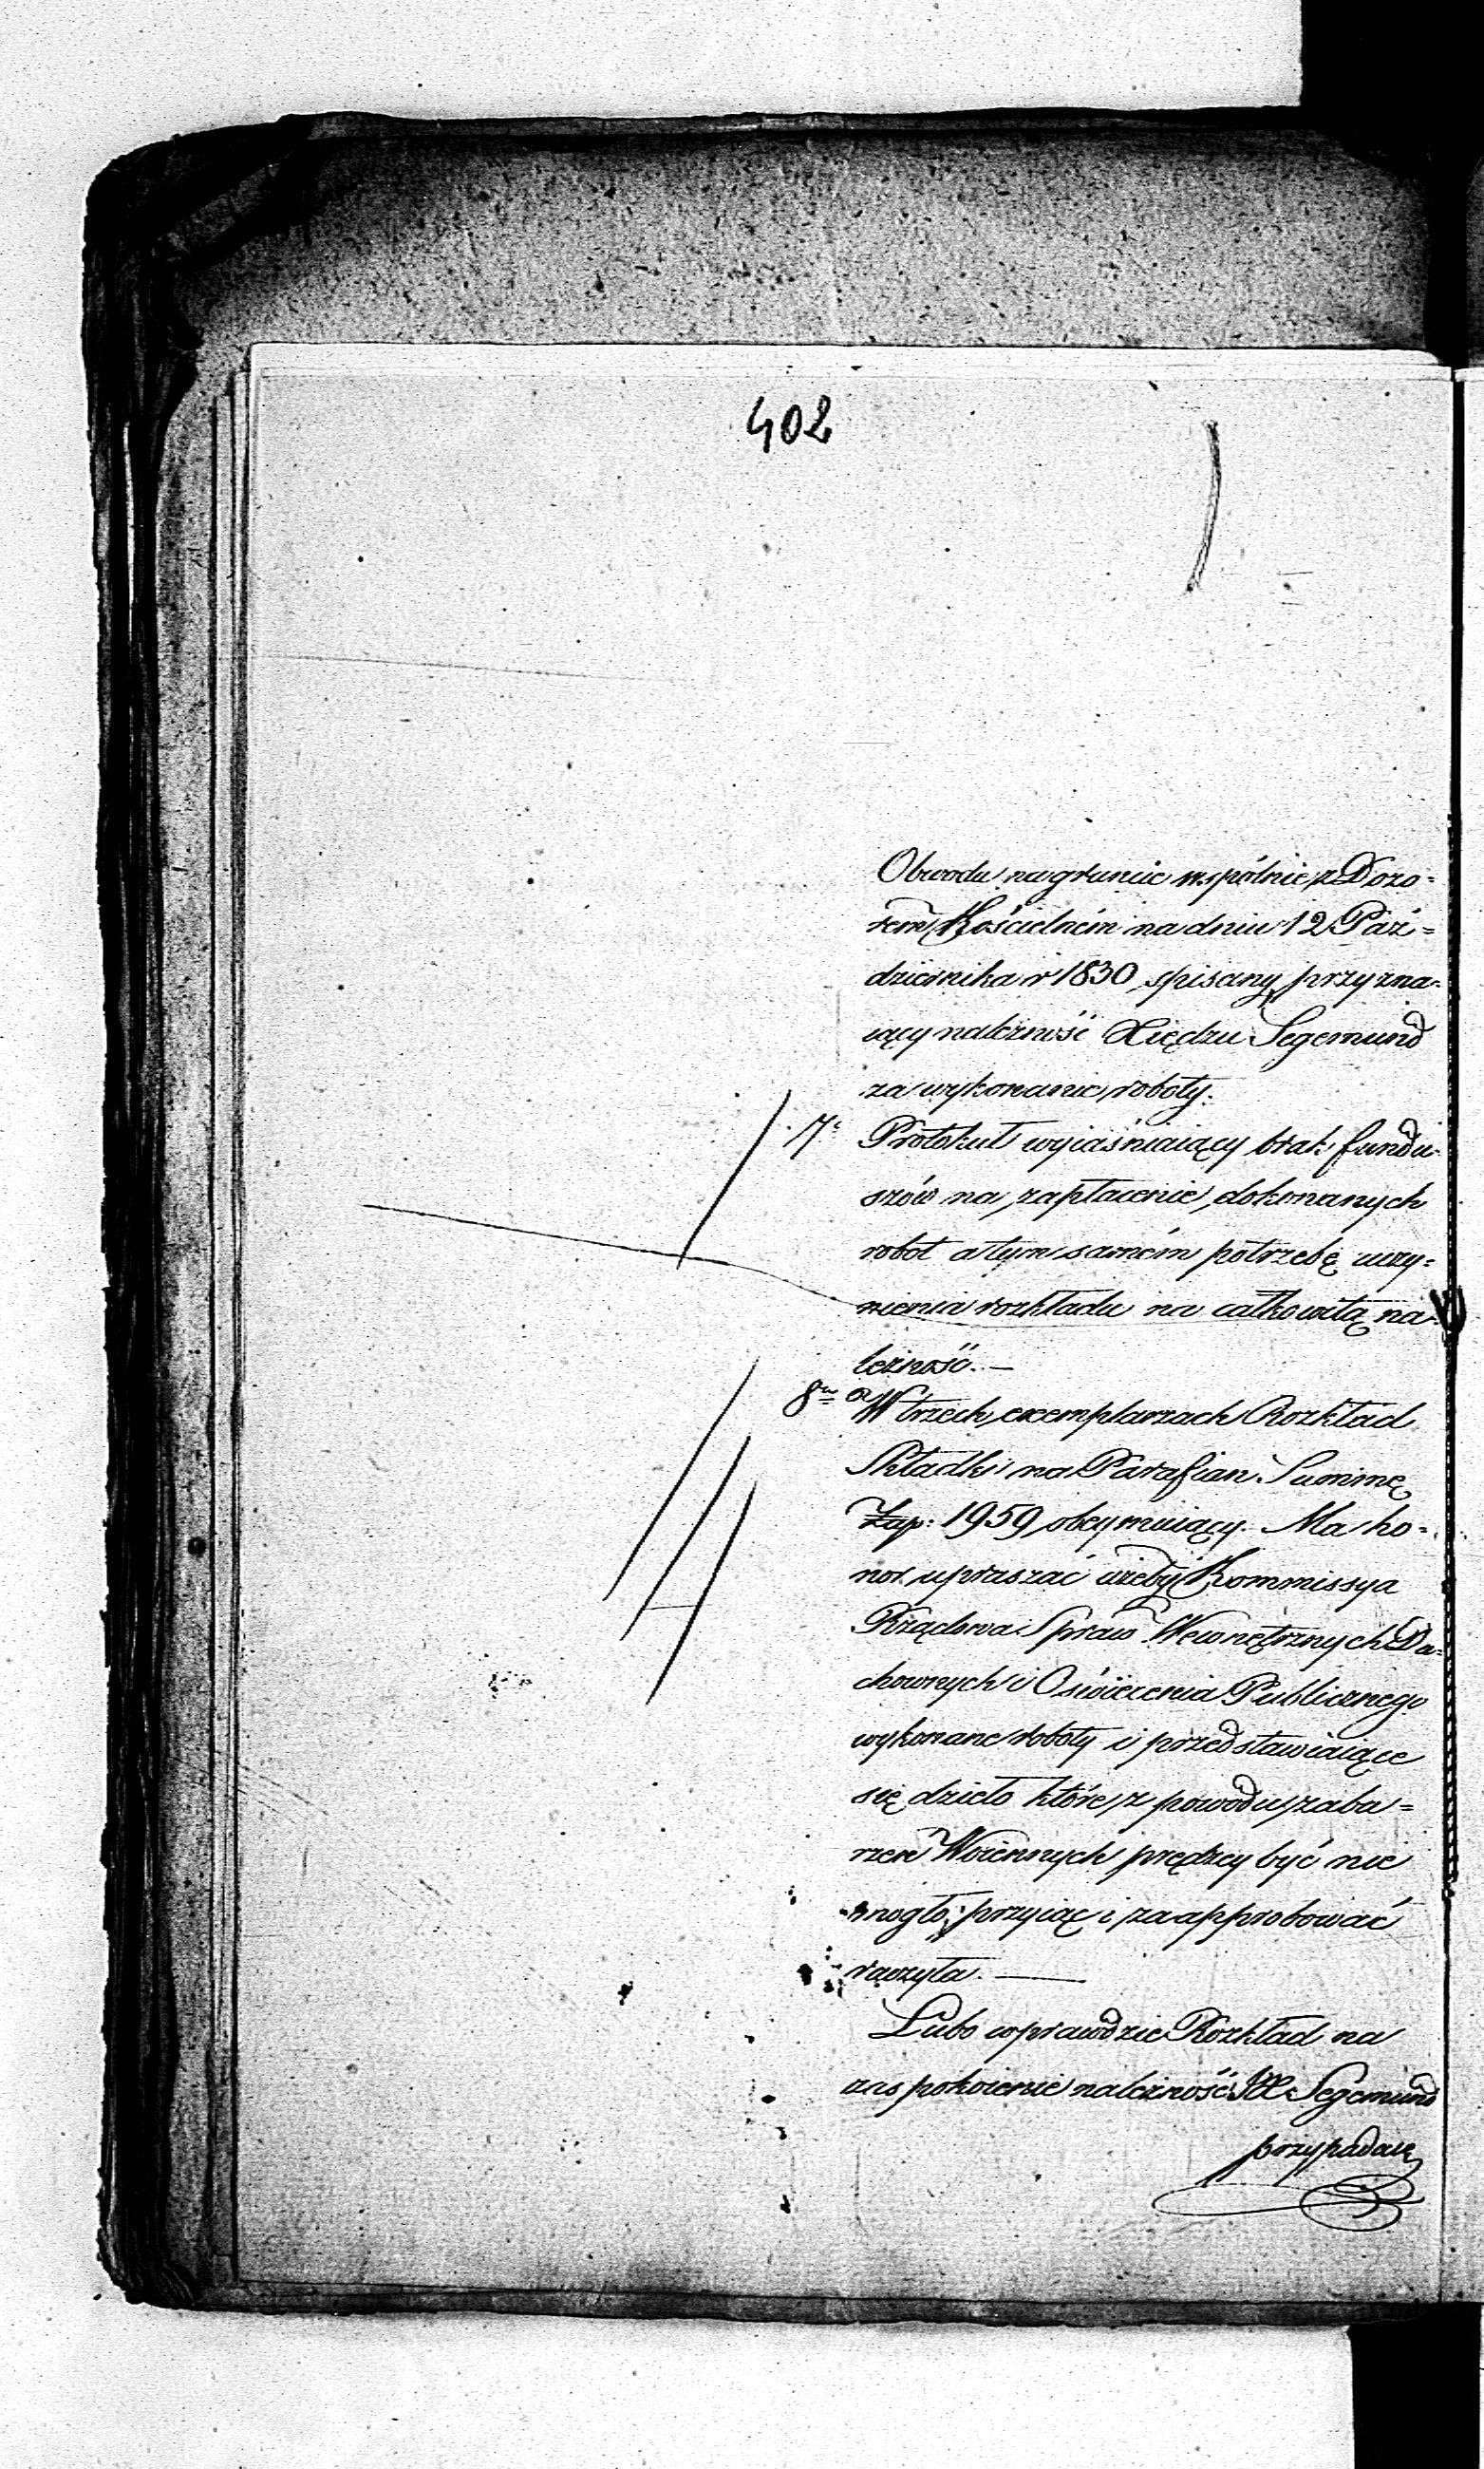 402
Obwodu na gruncie wspólnie z Dozo=
rem Kościelném na dniu 12 Paź=
dziernika r 1830 spisany przyzna=
iący należność Xiędzu Segemund
za wykonanie roboty.
7e Protokuł wyiaśniaiący brak fundu=
szów na zapłacenie dokonanych
robot a tym samém potrzebę uczy=
nienia rozkładu na całkowitą na=
leżność. —
8e W trzech exemplarzach Rozkład
Składki na Parafian Summę
Złp: 1959 obeymuiący. Ma ho=
nor upraszać ażeby Kommissya
Rządowa Spraw Wewnętrznych Du=
chownych i Oświecenia Publicznego
wykonane roboty i przedstawiaiące
się dzieło które z powodu zabu=
rzeń Woiennych prędzey być nie
mogło, przyiąć i zaapprobować
raczyła. —
Lubo wprawdzie Rozkład na
zaspokoienie należność JX Segemund
przypadaią